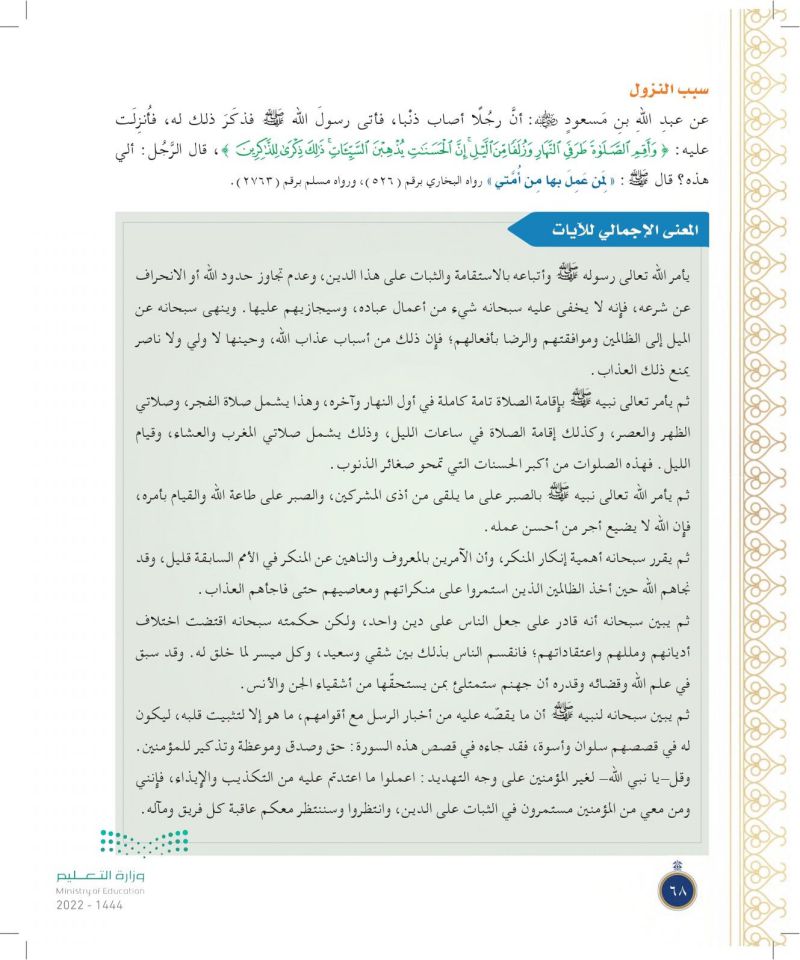 سبب النزول
عن عبدِ اللهِ بنِ مَسعودٍ رضي الله عنه: أنَّ رجُلًا أصاب ذنْبا، فأتى رسولَ الله ﷺ فذكَرَ ذلك له، فأُنزِلَت
عليه: ﴿ وَأَقِمِ ٱلصَّلَوٰةَ طَرَفَيِ ٱلنَّهَارِ وَزُلَفًا مِّنَ ٱلَّيْلِ ۚ إِنَّ ٱلْحَسَنَـٰتِ يُذْهِبْنَ ٱلسَّيِّـَٔاتِ ۚ ذَٰلِكَ ذِكْرَىٰ لِلذَّٰكِرِينَ ﴾، قال الرَّجُل: ألي
هذه؟ قال ﷺ: «لِمَن عَمِلَ بها مِن أُمَّتي» رواه البخاري برقم (٥٢٦)، ورواه مسلم برقم (٢٧٦٣).
المعنى الإجمالي للآيات
يأمر الله تعالى رسوله ﷺ وأتباعه بالاستقامة والثبات على هذا الدين، وعدم تجاوز حدود الله أو الانحراف
عن شرعه، فإنه لا يخفى عليه سبحانه شيء من أعمال عباده، وسيجازيهم عليها. وينهى سبحانه عن
الميل إلى الظالمين وموافقتهم والرضا بأفعالهم؛ فإن ذلك من أسباب عذاب الله، وحينها لا ولي ولا ناصر
يمنع ذلك العذاب.
ثم يأمر تعالى نبيه ﷺ بإقامة الصلاة تامة كاملة في أول النهار وآخره، وهذا يشمل صلاة الفجر، وصلاتي
الظهر والعصر، وكذلك إقامة الصلاة في ساعات الليل، وذلك يشمل صلاتي المغرب والعشاء، وقيام
الليل. فهذه الصلوات من أكبر الحسنات التي تمحو صغائر الذنوب.
ثم يأمر الله تعالى نبيه ﷺ بالصبر على ما يلقى من أذى المشركين، والصبر على طاعة الله والقيام بأمره،
فإن الله لا يضيع أجر من أحسن عمله.
ثم يقرر سبحانه أهمية إنكار المنكر، وأن الآمرين بالمعروف والناهين عن المنكر في الأمم السابقة قليل، وقد
نجاهم الله حين أخذ الظالمين الذين استمروا على منكراتهم ومعاصيهم حتى فاجأهم العذاب.
ثم يبين سبحانه أنه قادر على جعل الناس على دين واحد، ولكن حكمته سبحانه اقتضت اختلاف
أديانهم ومللهم واعتقاداتهم؛ فانقسم الناس بذلك بين شقي وسعيد، وكل ميسر لما خلق له. وقد سبق
في علم الله وقضائه وقدره أن جهنم ستمتلئ بمن يستحقّها من أشقياء الجن والأنس.
ثم يبين سبحانه لنبيه ﷺ أن ما يقصّه عليه من أخبار الرسل مع أقوامهم، ما هو إلا لتثبيت قلبه، ليكون
له في قصصهم سلوان وأسوة، فقد جاءه في قصص هذه السورة: حق وصدق وموعظة وتذكير للمؤمنين.
وقل-يا نبي الله- لغير المؤمنين على وجه التهديد: اعملوا ما اعتدتم عليه من التكذيب والإيذاء، فإنني
ومن معي من المؤمنين مستمرون في الثبات على الدين، وانتظروا وسننتظر معكم عاقبة كل فريق ومآله.
وزارة التعليم
Ministry of Education
2022 - 1444
٦٨